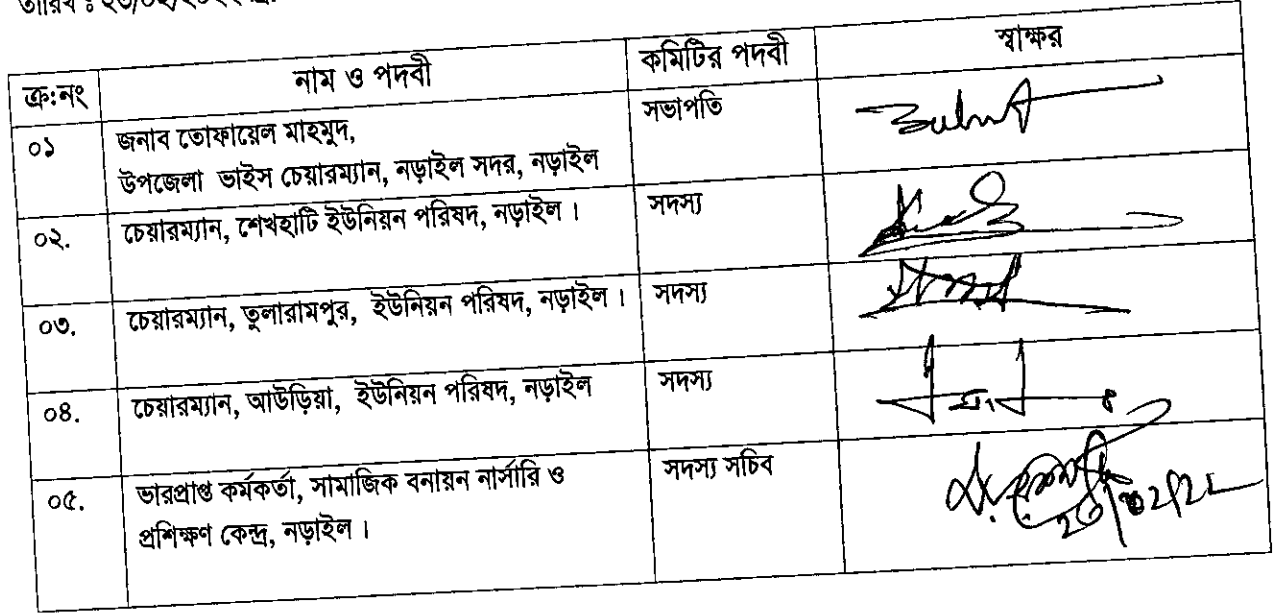 ক্র:নং নাম ও পদবী কমিটির পদবী স্বাক্ষর
০১ জনাব তোফায়েল মাহমুদ, সভাপতি
উপজেলা ভাইস চেয়ারম্যান, নড়াইল সদর, নড়াইল
০২. চেয়ারম্যান, শেখহাটি ইউনিয়ন পরিষদ, নড়াইল । সদস্য
০৩. চেয়ারম্যান, তুলারামপুর, ইউনিয়ন পরিষদ, নড়াইল । সদস্য
০৪. চেয়ারম্যান, আউড়িয়া, ইউনিয়ন পরিষদ, নড়াইল সদস্য
০৫. ভারপ্রাপ্ত কর্মকর্তা, সামাজিক বনায়ন নার্সারি ও সদস্য সচিব
প্রশিক্ষণ কেন্দ্র, নড়াইল ।